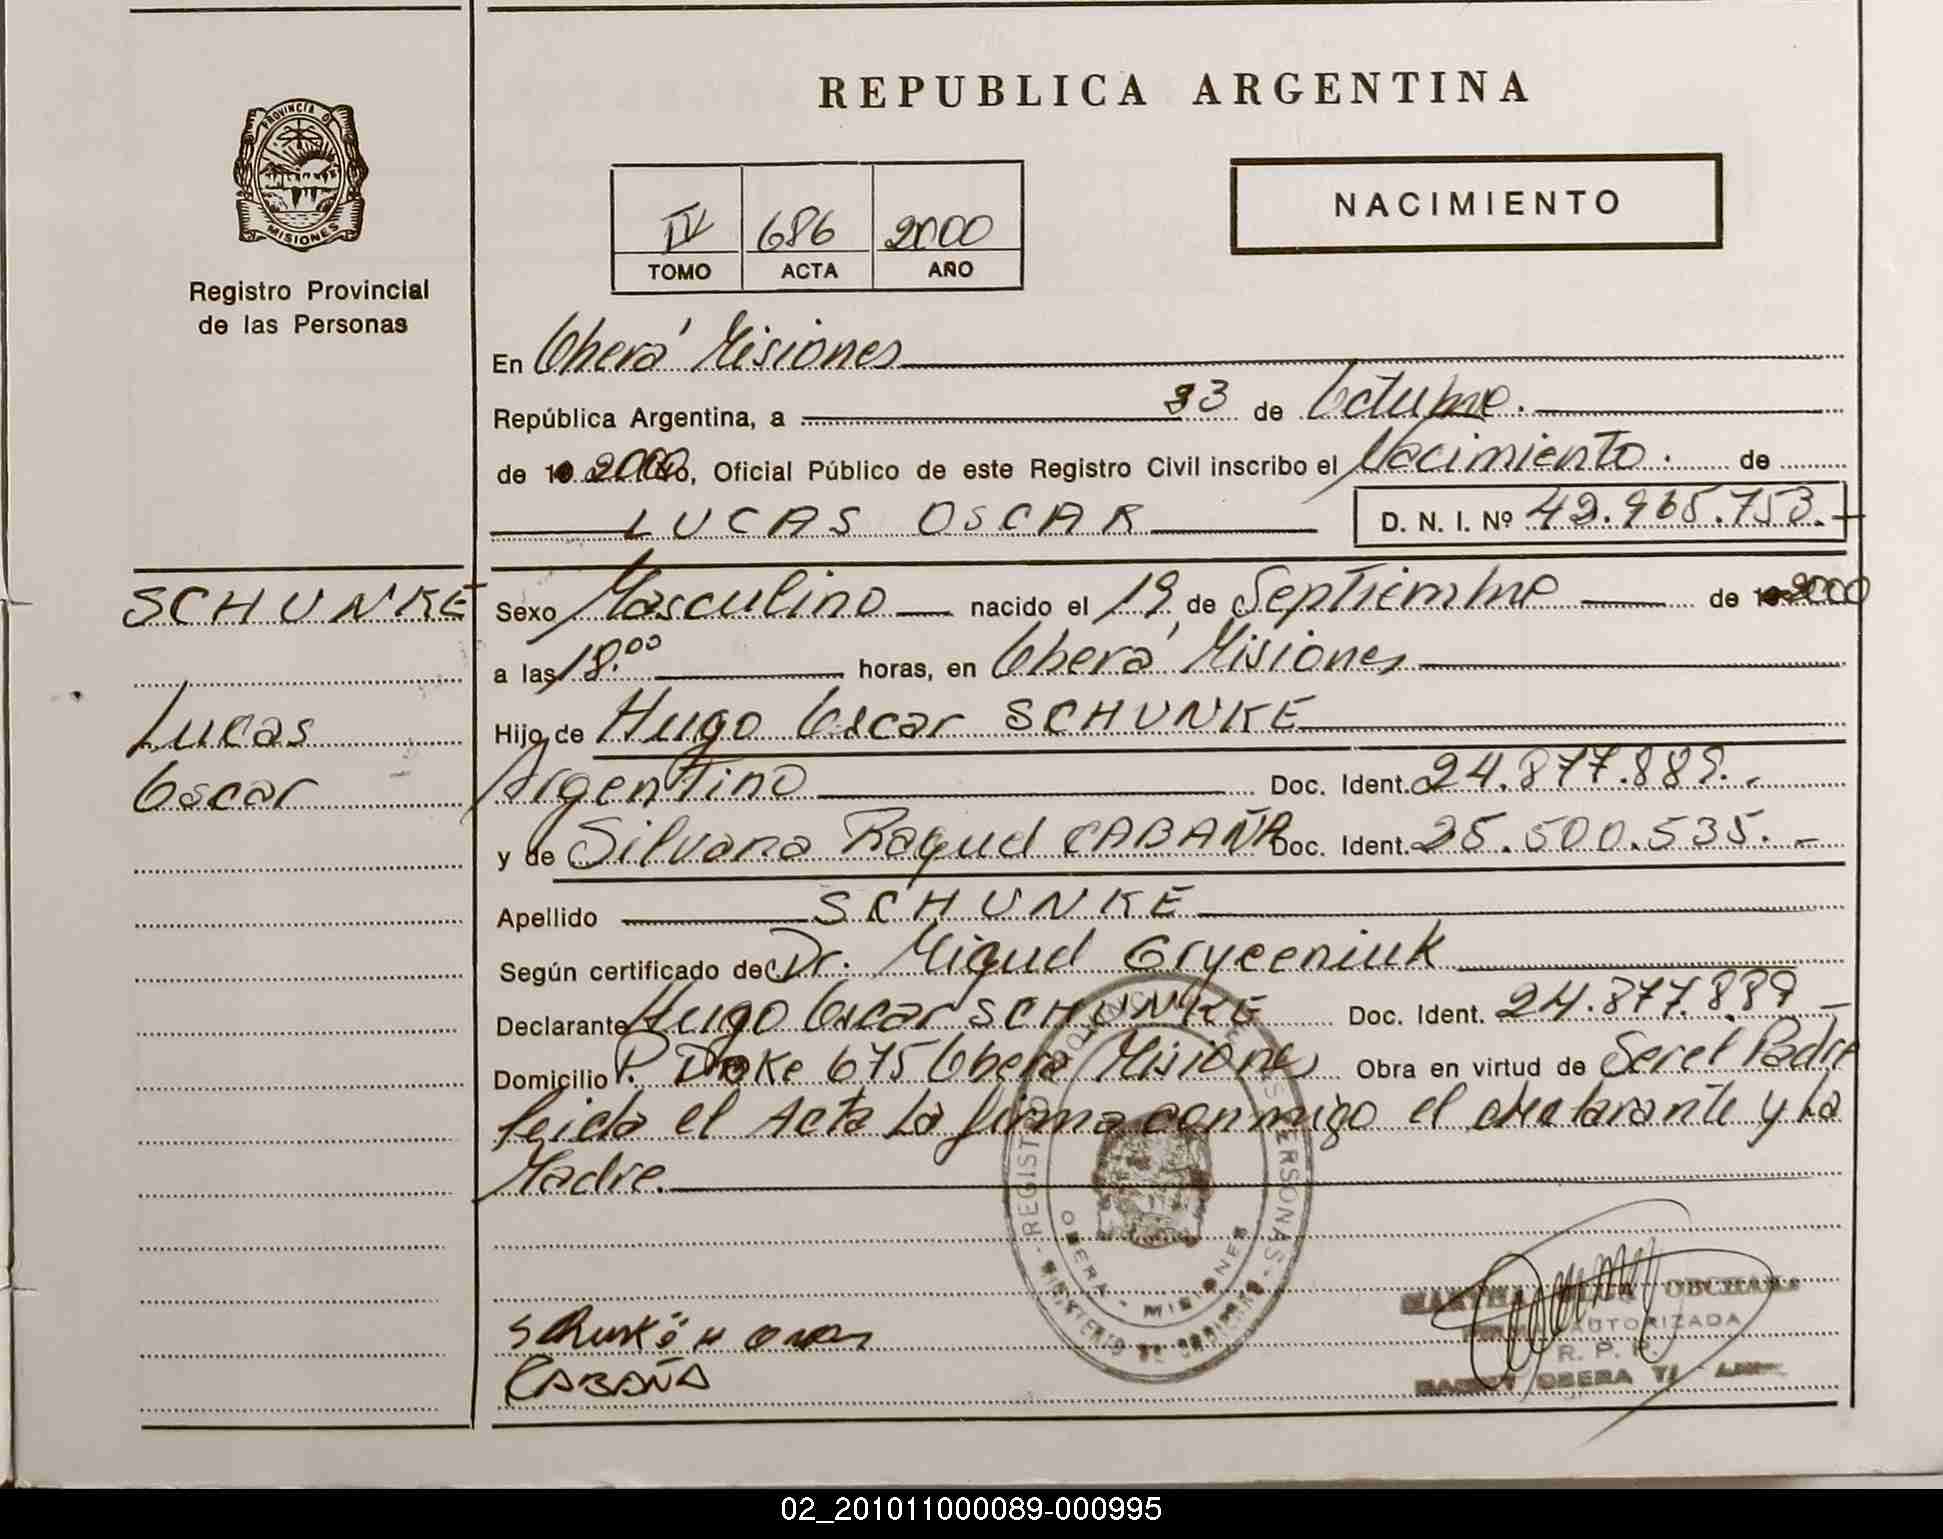 REPUBLICA ARGENTINA
PROVINCIA D
MISIONES
Registro Provincial
de las Personas
IV 686 2000
TOMO ACTA AÑO
NACIMIENTO
En Oberá Misiones
República Argentina, a 3 de Octubre.
de 2000, Oficial Público de este Registro Civil inscribo el Nacimiento. de
LUCAS OSCAR D. N. I. Nº 42.965.753.-
SCHUNKE
Lucas
Oscar
Sexo Masculino nacido el 19 de Septiembre de 2000
a las 18.00 horas, en Oberá Misiones
Hijo de Hugo Oscar SCHUNKE
Argentino Doc. Ident. 24.877.889.-
y de Silvana Raquel CABAÑA Doc. Ident. 25.500.535.-
Apellido SCHUNKE
Según certificado de Dr. Miguel Gryceniuk
Declarante Hugo Oscar SCHUNKE Doc. Ident. 24.877.889-
Domicilio P. 675 Oberá Misiones Obra en virtud de Ser el Padre
leida el Acta la firma conmigo el declarante y la
Madre.
REGISTRO PERSONAS
OBERA - MISIONES
CABAÑA
AUTORIZADA
R. P. P.
OBERA
02_201011000089-000995